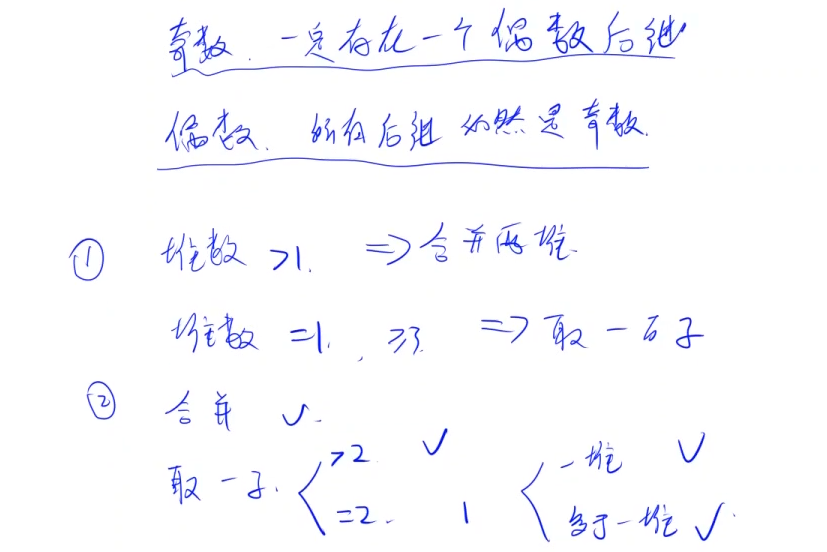 奇数. 一定存在一个偶数后继
偶数. 所有后继必然是奇数.
① 堆数 >1. => 合并两堆.
堆数 =1. , ≥3. => 取一石子
② 合并 ✓.
取一子. >2 ✓ 一堆 ✓
=2. 1 多于一堆 ✓.